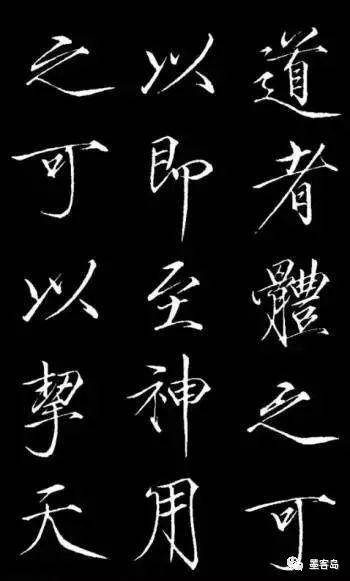 道者體之可
以即至神用
之可以挈天
墨客岛